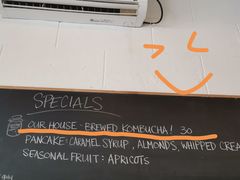 SPECIALS
OUR HOUSE-BREWED KOMBUCHA! 30
PANCAKE: CARAMEL SYRUP, ALMONDS, WHIPPED CREA
SEASONAL FRUIT: APRICOTS